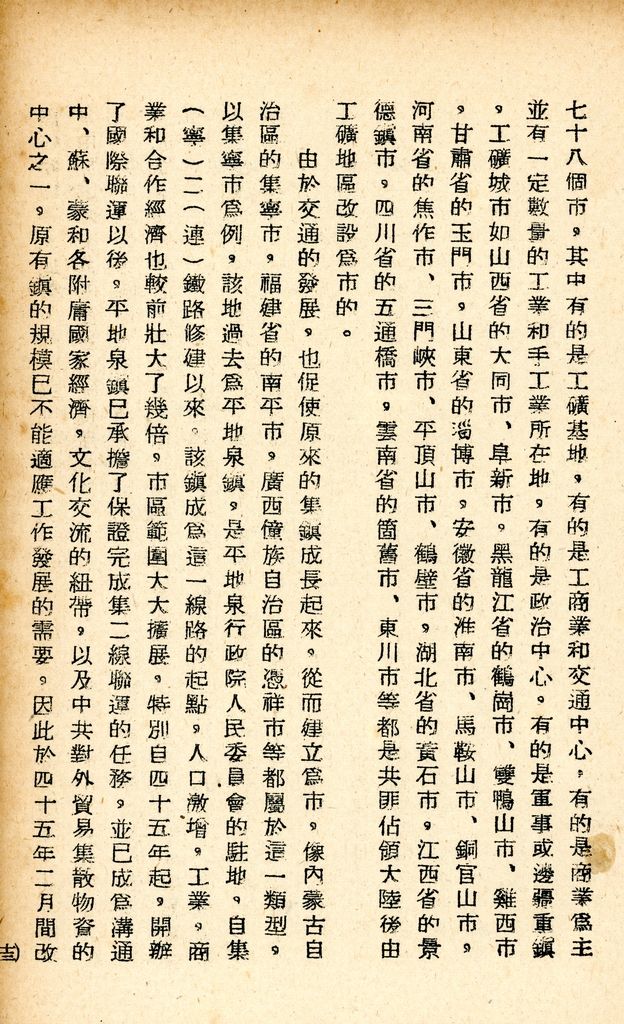 七十八個市，其中有的是工礦基地，有的是工商業和交通中心，有的是商業爲主
並有一定數量的工業和手工業所在地，有的是政治中心。有的是軍事或邊疆重鎮
。工礦城市如山西省的大同市、阜新市，黑龍江省的鶴崗市、雙鴨山市、雞西市
，甘肅省的玉門市，山東省的淄博市，安徽省的淮南市、馬鞍山市、銅官山市，
河南省的焦作市、三門峽市、平頂山市、鶴壁市，湖北省的黃石市，江西省的景
德鎮市，四川省的五通橋市，雲南省的箇舊市、東川市等都是共匪佔領大陸後由
工礦地區改設爲市的。
由於交通的發展，也促使原來的集鎮成長起來，從而建立爲市，像內蒙古自
治區的集寧市，福建省的南平市，廣西僮族自治區的憑祥市等都屬於這一類型。
以集寧市爲例，該地過去爲平地泉鎮，是平地泉行政院人民委員會的駐地，自集
（寧）二（連）鐵路修建以來，該鎮成爲這一線路的起點，人口激增，工業，商
業和合作經濟也較前壯大了幾倍，市區範圍大大擴展，特別自四十五年起，開辦
了國際聯運以後，平地泉鎮已承擔了保證完成集二線聯運的任務，並已成爲溝通
中、蘇、蒙和各附庸國家經濟，文化交流的紐帶，以及中共對外貿易集散物資的
中心之一，原有鎮的規模已不能適應工作發展的需要，因此於四十五年二月間改